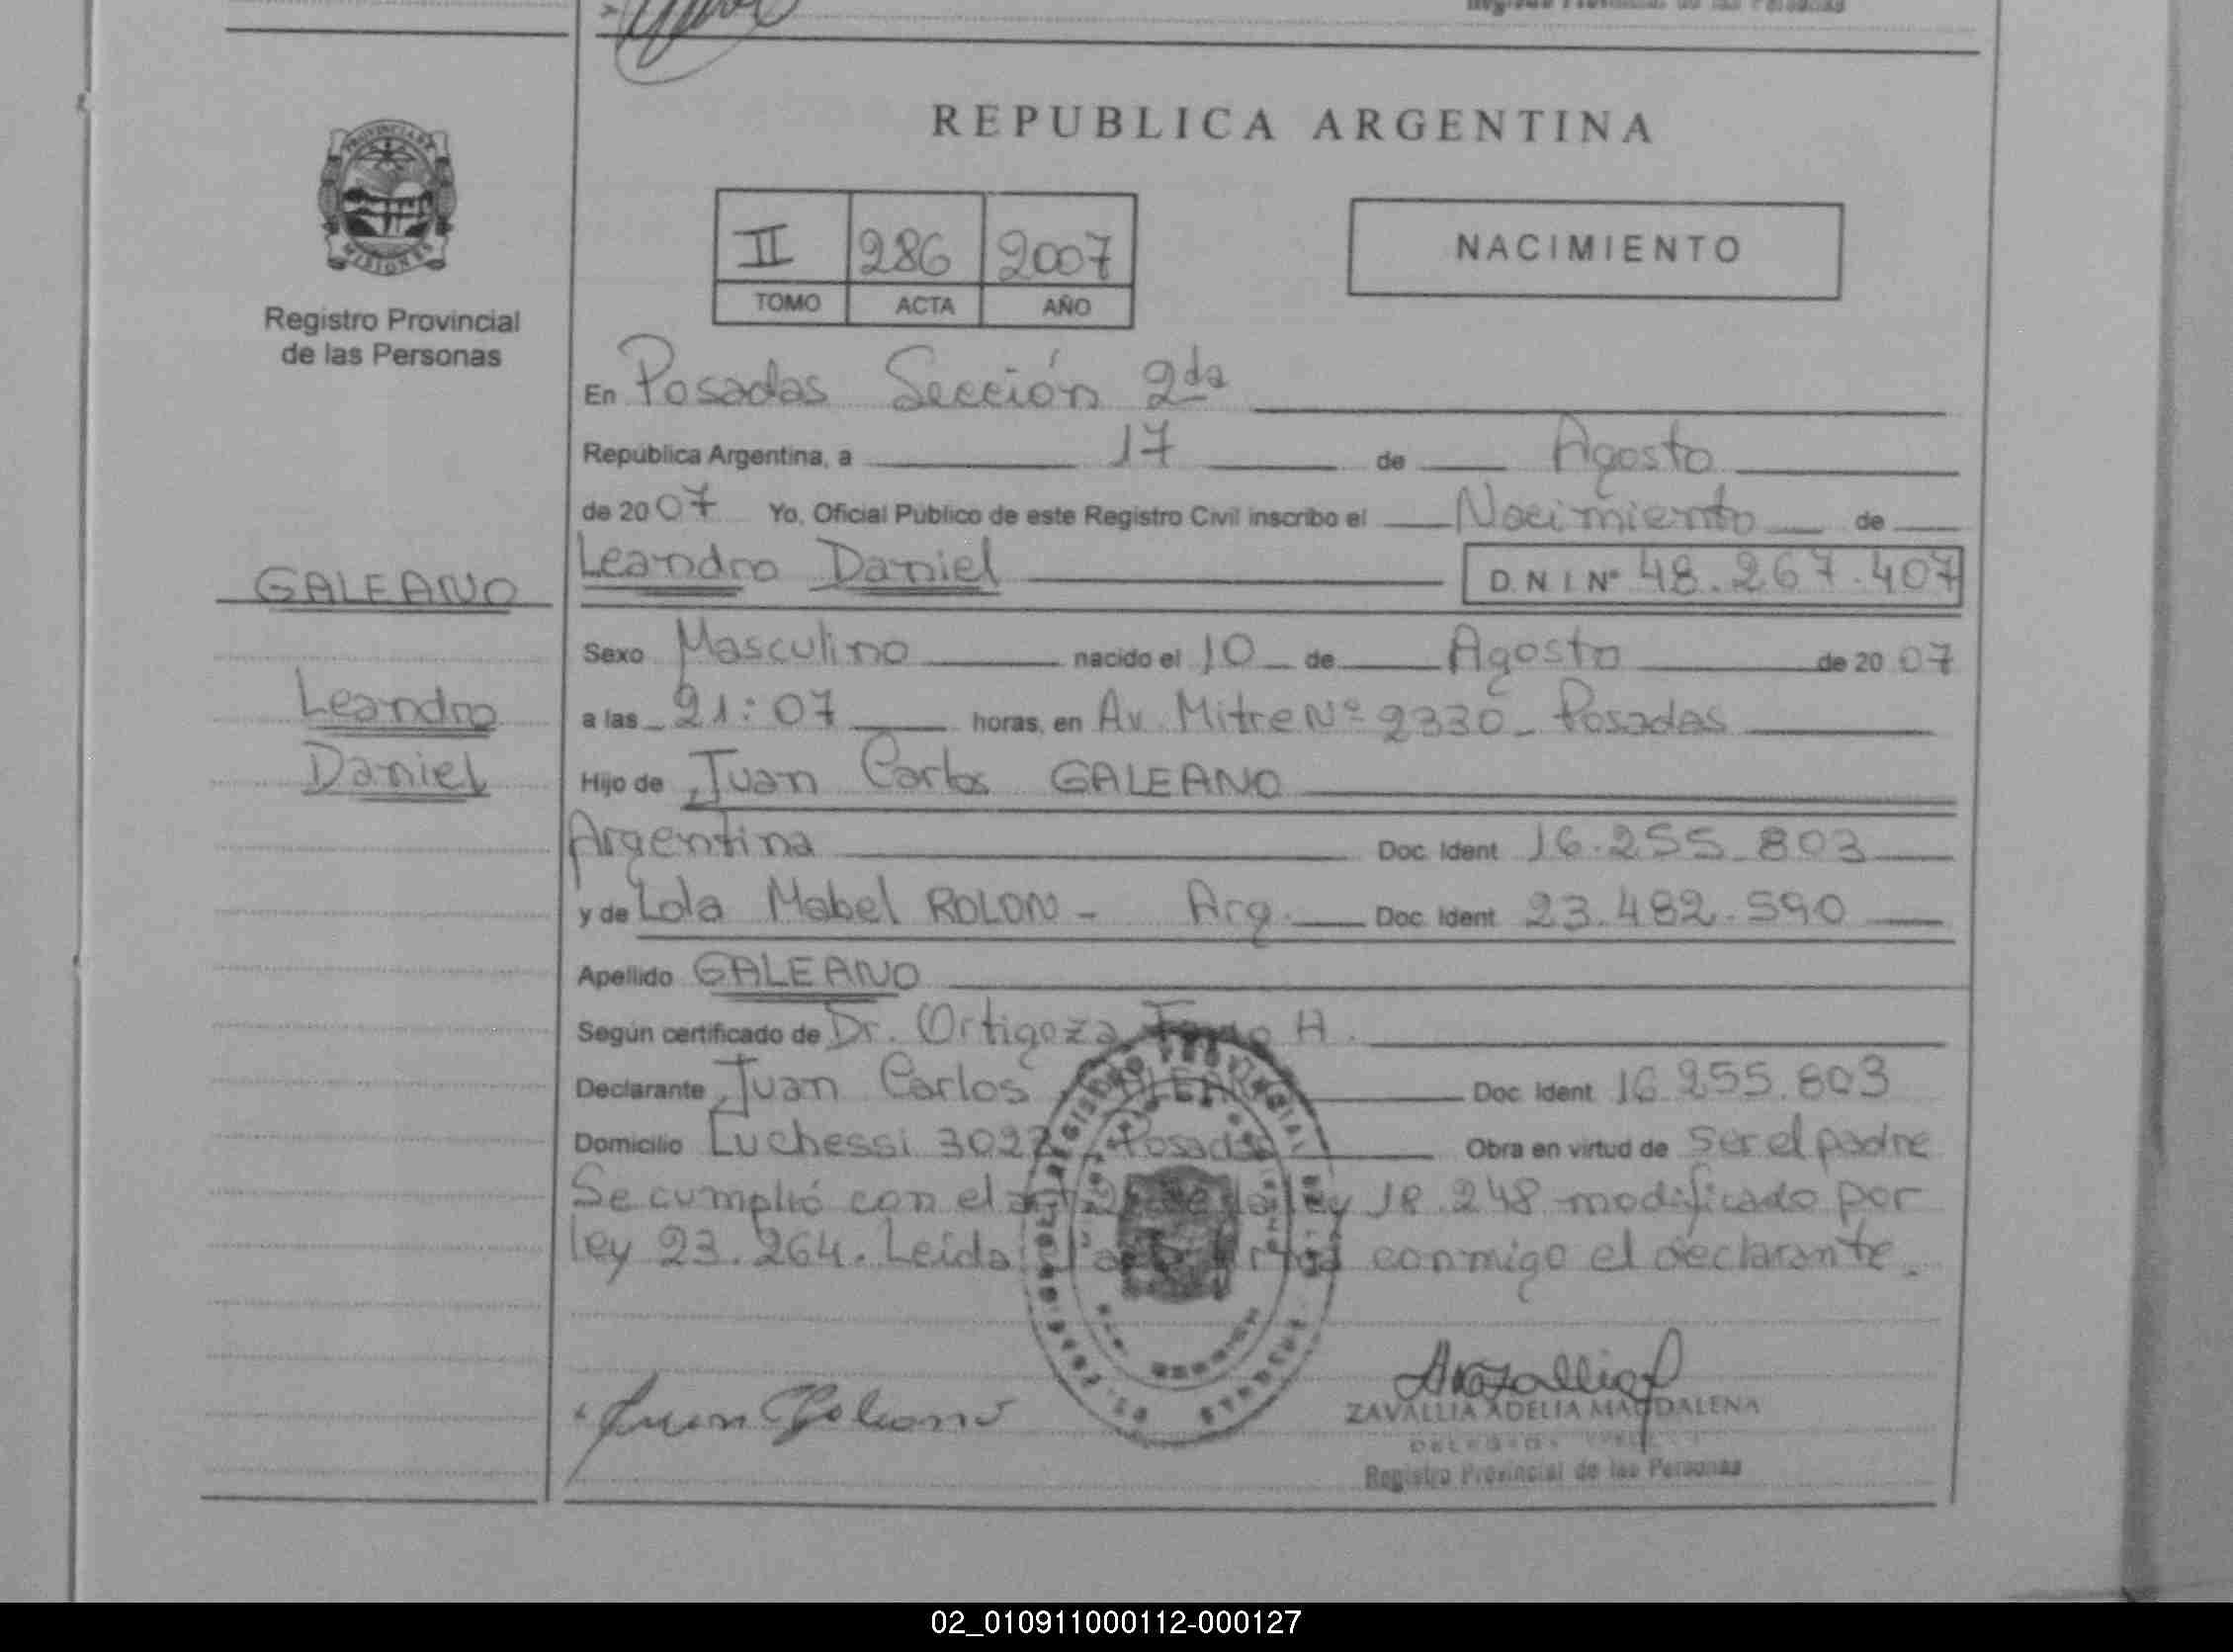 Registro Provincial de las Personas
REPUBLICA ARGENTINA
PROVINCIA DE
MISIONES
Registro Provincial
de las Personas
II 286 2007
TOMO ACTA AÑO
NACIMIENTO
En Posadas Sección 2da
República Argentina, a 17 de Agosto
de 2007 Yo, Oficial Público de este Registro Civil inscribo el Nacimiento de
GALEANO
Leandro Daniel D.N.I Nº 48.267.407
Sexo Masculino nacido el 10 de Agosto de 2007
Leandro
a las 21:07 horas, en Av. Mitre Nº 2330 - Posadas
Daniel
Hijo de Juan Carlos GALEANO
Argentina Doc. Ident 16.255.803
y de Lola Mabel ROLON - Arg. Doc. Ident 23.482.590
Apellido GALEANO
Según certificado de Dr. Ortigoza H.
Declarante Juan Carlos Doc. Ident 16.255.803
Domicilio Luchessi 3027 Posadas Obra en virtud de ser el padre
Se cumplió con el art de la ley 18.248 modificado por
ley 23.264. Leída conmigo el declarante.
Juan C Galeano
ZAVALLIA ADELIA MAGDALENA
Registro Provincial de las Personas
02_010911000112-000127